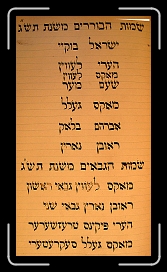 שמות הבוררים משנת תש״ג
ישראל בוקיי
הערי לעווין
מאקס לעווין
שעם מער
מאקס געלל
אברהם בלאק
ראובן נארין
שמות הגבאים משנת תש״ג
מאקס לעווין גבאי ראשון
ראובן נארין גבאי שני
הערי פינקוס טרעזשערער
מאקס געלל סעקרעטערי